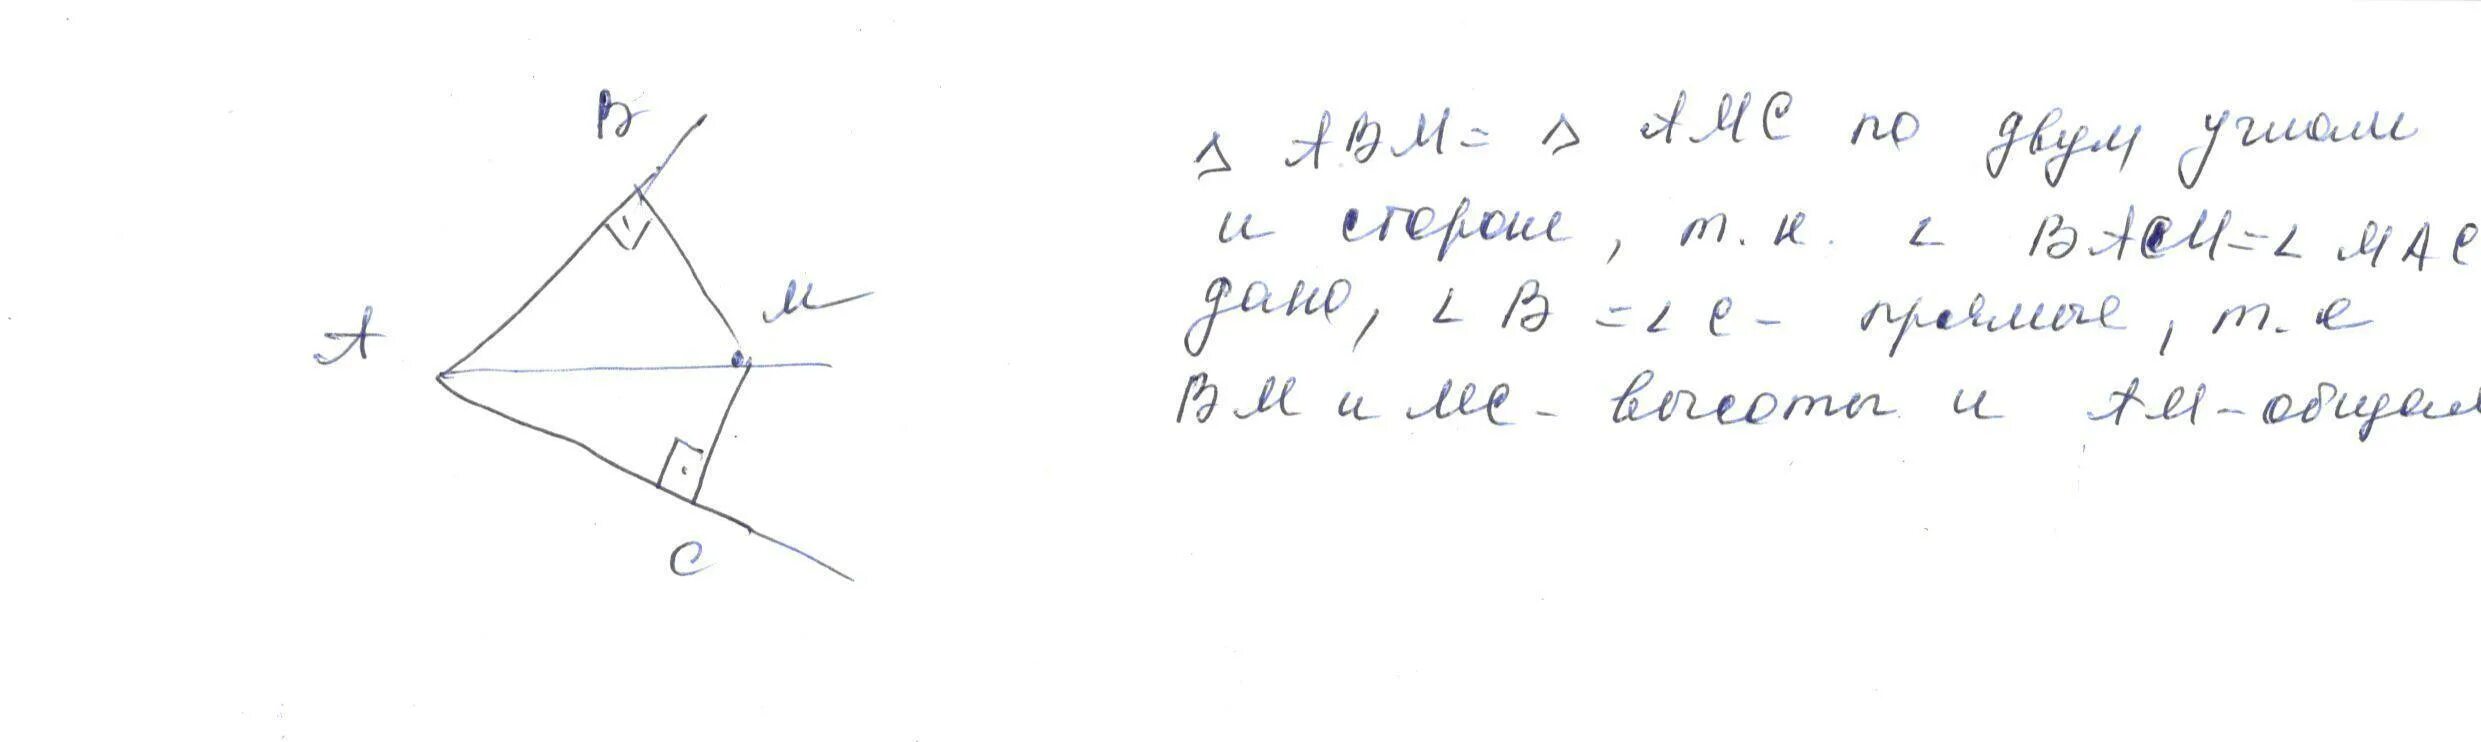 B
M
A
C
△ ABM = △ AMC по двум углам
и стороне, т.к. ∠ BACM = ∠ MAC
дано, ∠ B = ∠ C - прямые, т.к
BM и MC - высоты и AM - общая